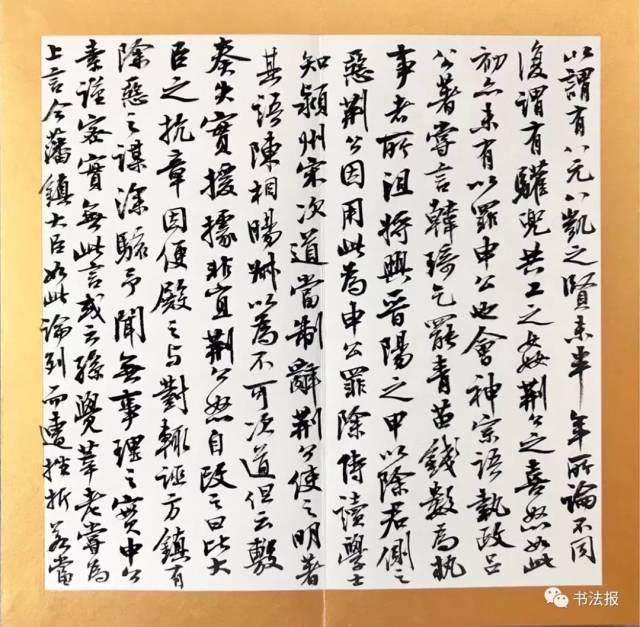 以謂有八元八凱之賢未半年所論不同
復謂有驩兜共工之姦荊公之喜怒如此
初亦未有以罪申公也會神宗語執政呂
公著嘗言韓琦乞罷青苗錢數為執
事者所沮將興晉陽之甲以除君側之
惡荊公因用此為申公罪除侍讀學士
知潁州宋次道當制辭荊公使之明著
其語陳相暘叔以為不可次道但云敷
奏失實援據非宜荊公怒自改之曰比大
臣之抗章因便殿之與對輒誣方鎮有
除惡之謀深駭予聞無事理之實申公
素謹密實無此言或云孫覺莘老嘗為
上言今藩鎮大臣如此論列而遭挫折若當
书法报